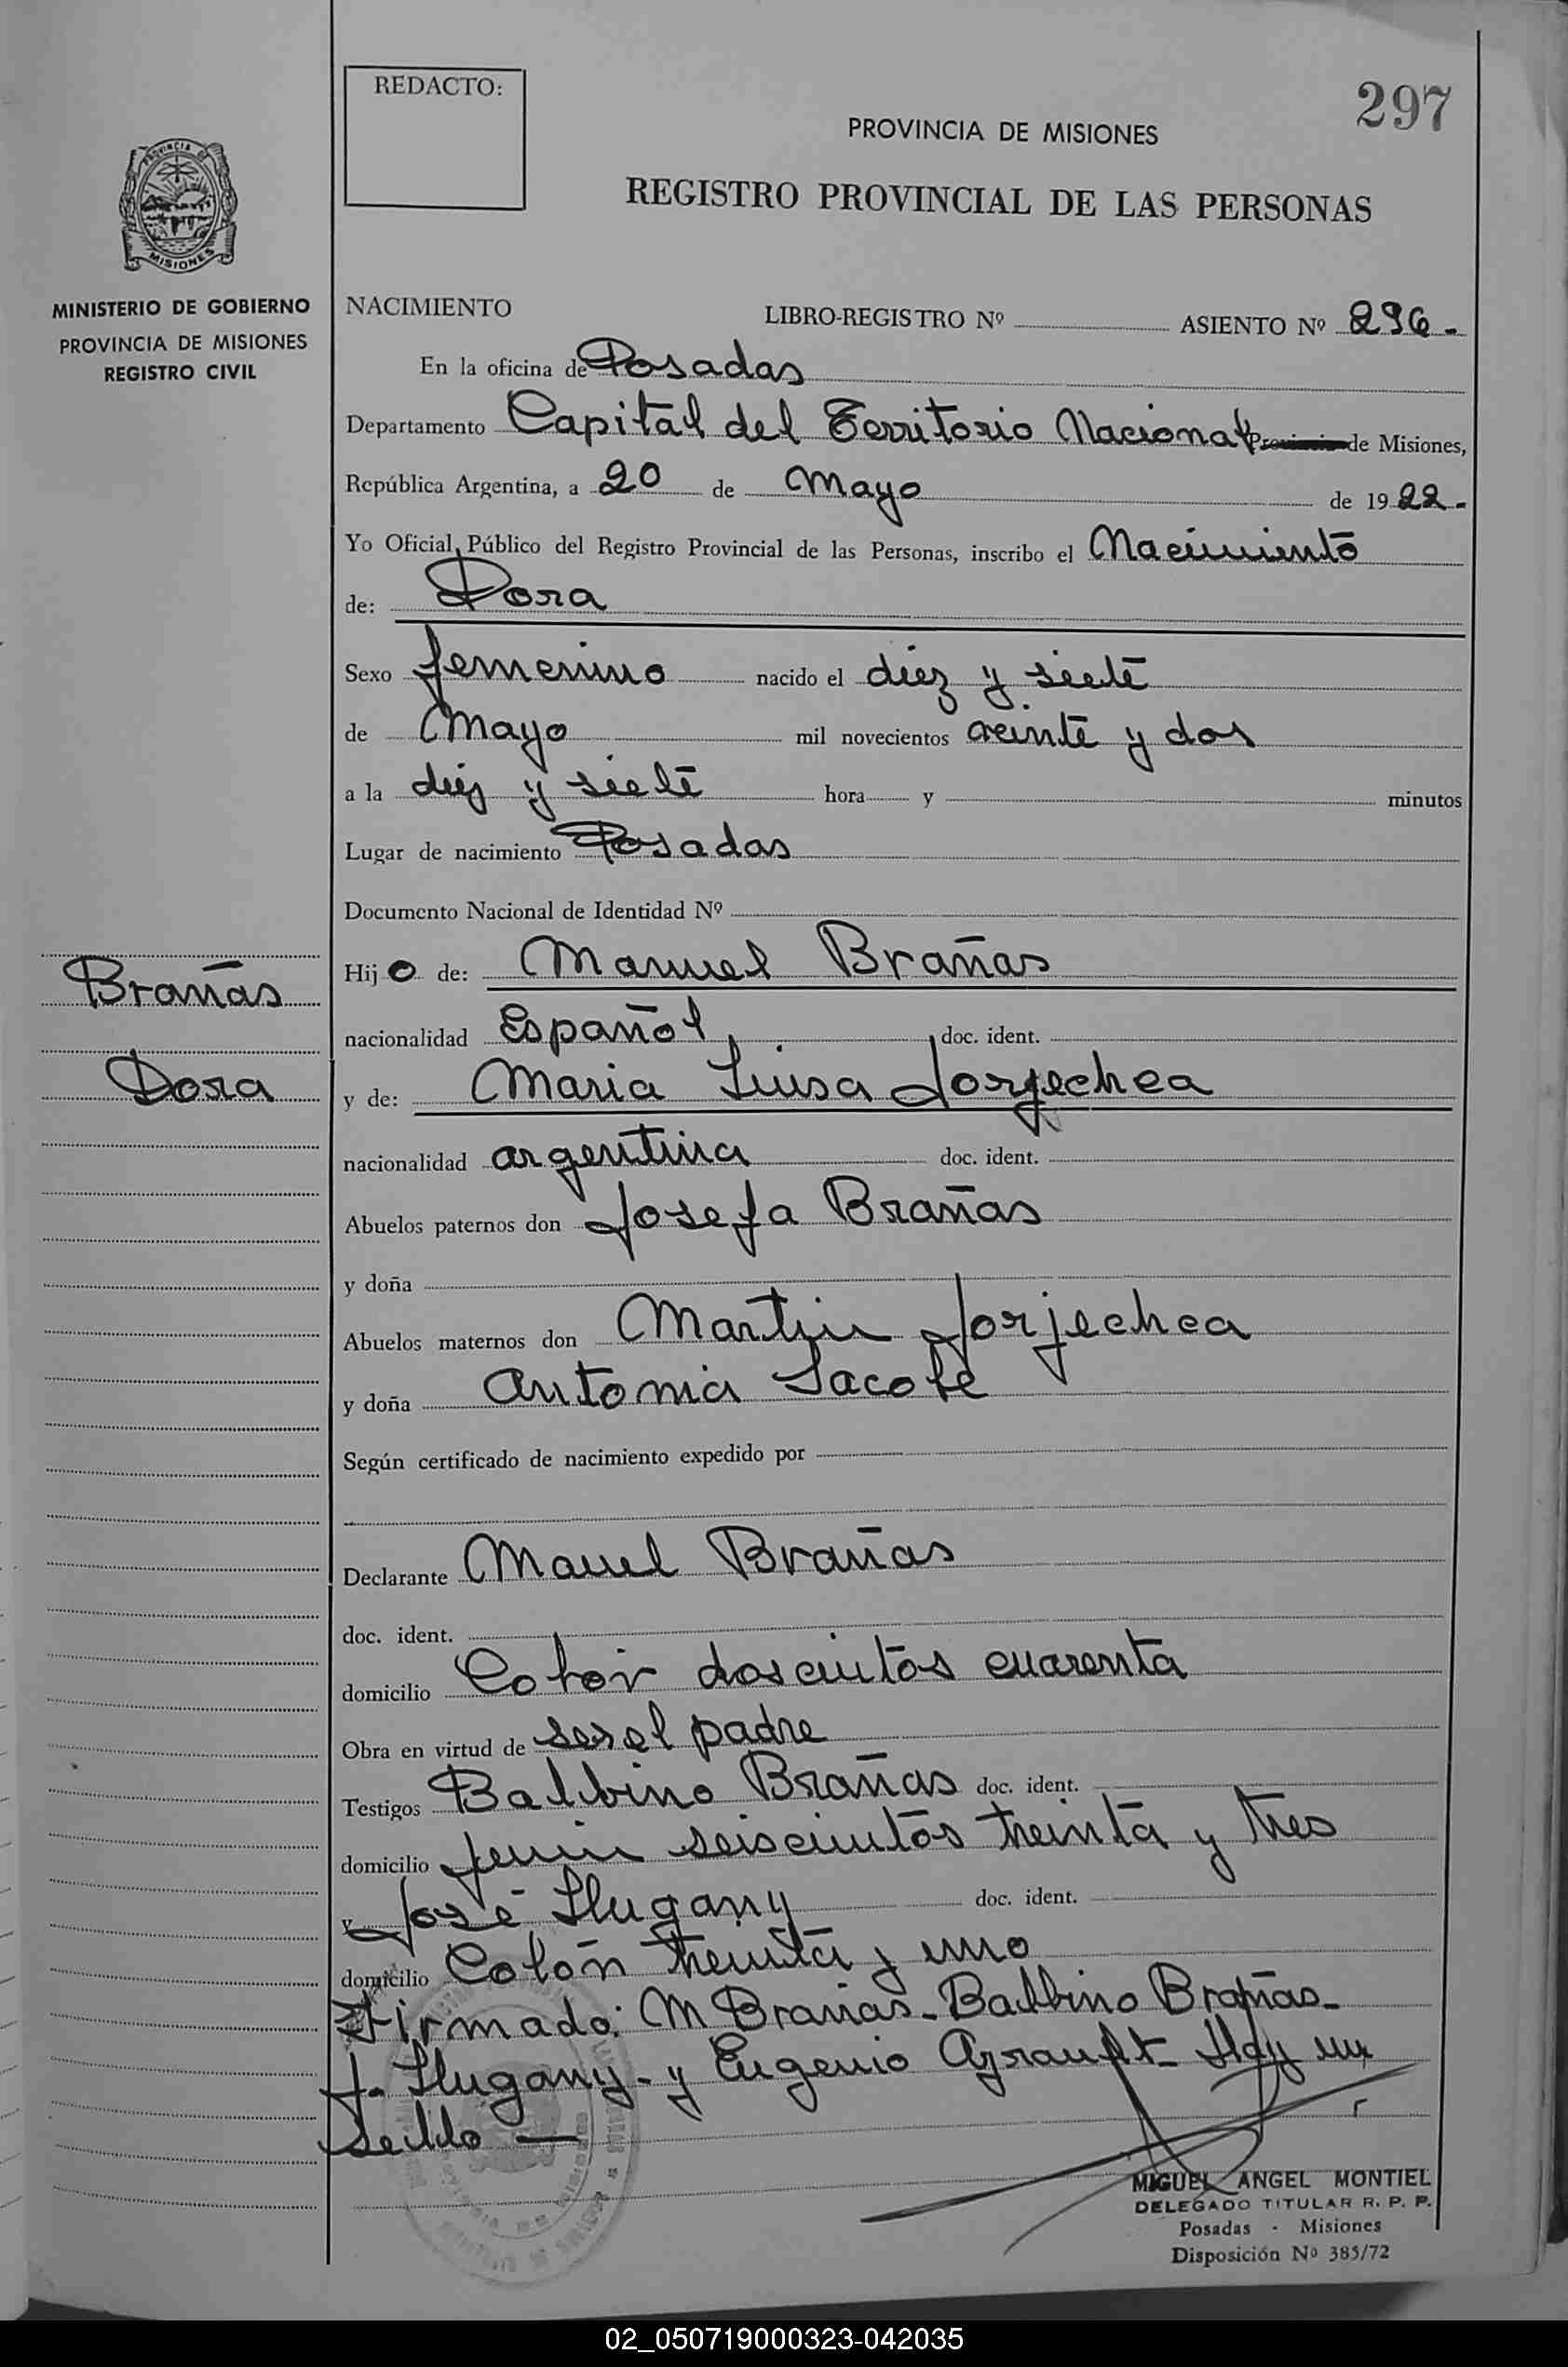 REDACTO:
297
PROVINCIA DE MISIONES
REGISTRO PROVINCIAL DE LAS PERSONAS
PROVINCIA DE
MISIONES
MINISTERIO DE GOBIERNO
PROVINCIA DE MISIONES
REGISTRO CIVIL
NACIMIENTO LIBRO-REGISTRO Nº ASIENTO Nº 296.-
En la oficina de Posadas
Departamento Capital del Territorio Nacional Provincia de Misiones,
República Argentina, a 20 de Mayo de 1922.-
Yo Oficial Público del Registro Provincial de las Personas, inscribo el Nacimiento
de: Dora
Sexo femenino nacido el diez y siete
de Mayo mil novecientos veinte y dos
a la diez y siete hora y minutos
Lugar de nacimiento Posadas
Documento Nacional de Identidad Nº
Brañas
Hijo de: Manuel Brañas
nacionalidad Español doc. ident.
Dora
y de: Maria Luisa Jorjechea
nacionalidad argentina doc. ident.
Abuelos paternos don Josefa Brañas
y doña
Abuelos maternos don Martin Jorjechea
y doña Antonia Sacofe
Según certificado de nacimiento expedido por
Declarante Mauel Brañas
doc. ident.
domicilio Colon doscientos cuarenta
Obra en virtud de ser el padre
Testigos Balbino Brañas doc. ident.
domicilio Junin seiscientos treinta y tres
y José Llugany doc. ident.
domicilio Colón treinta y uno
Firmado: M Brañas - Balbino Brañas -
J. Llugany - y Eugenio Ayrault - Hay un
sello —
MIGUEL ANGEL MONTIEL
DELEGADO TITULAR R. P. P.
Posadas - Misiones
Disposición Nº 385/72
02_050719000323-042035